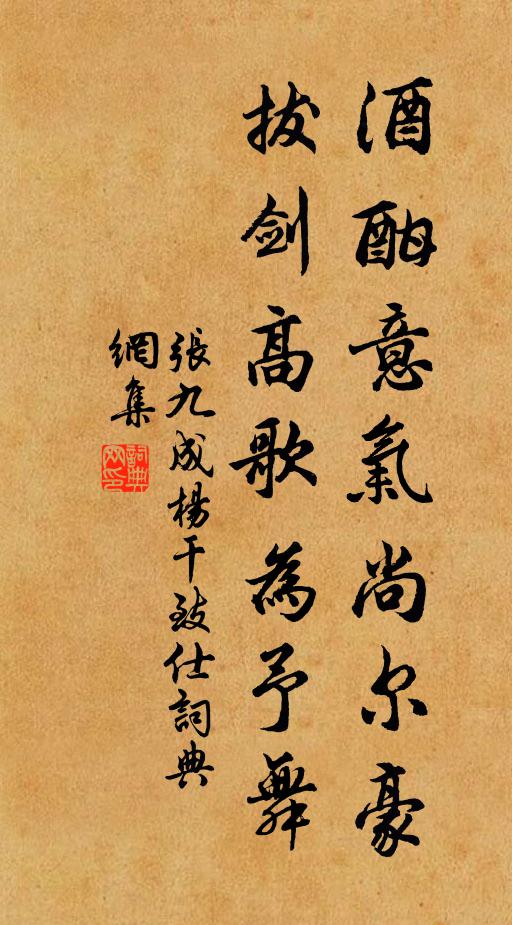 酒酣意氣尚尔豪
拔剑高歌為予舞
張九成楊干致仕詞典
網集
詞典
网印